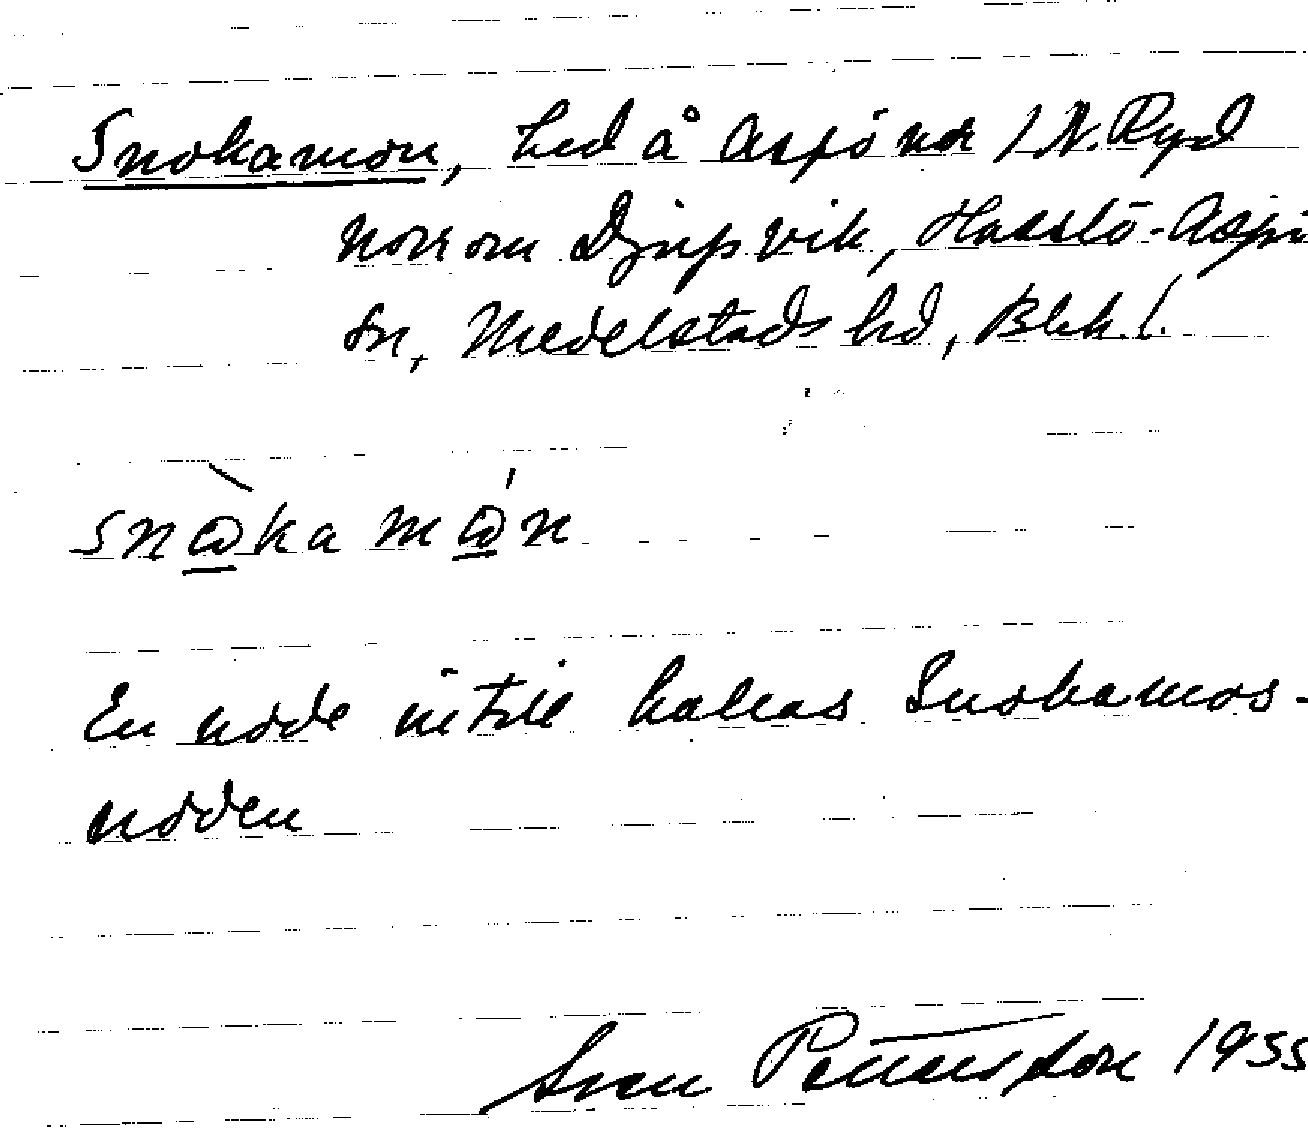 Snokamon, led å Aspö nor / N. Ryd
norrom Djupvik, Hasslö-Aspö
sn, Medelstads hd, Blek. l.
snωka mωn
En udde intill kallas Snokamos-
udden
Sven Pettersson 1955